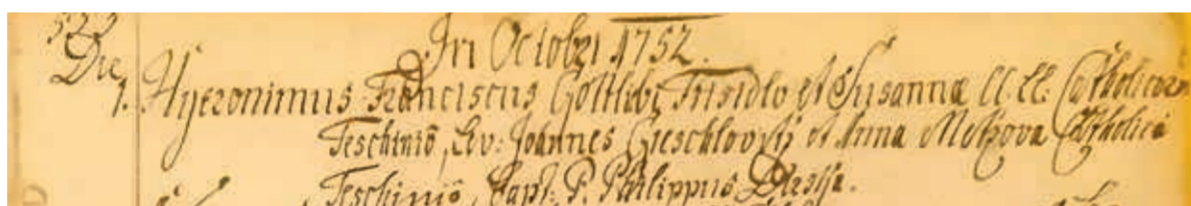 523
In October 1752.
Die
1. Hyeronimus Franciscus Gottlibi Trisidlo et Susannæ ll. ll. Catholicor
Teschinio, Lev: Joannes Cieschlovsky et Anna Catholica
Teschinio, Bapt: P. Philippus